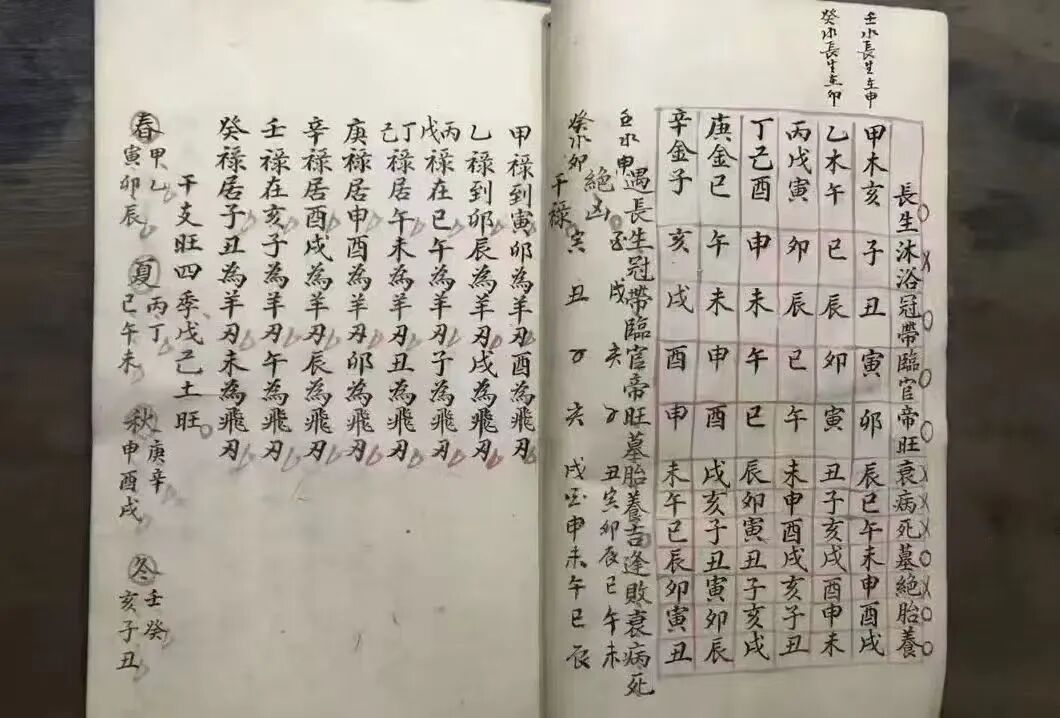 壬水長生在申
癸水長生在卯
長生沐浴冠帶臨官帝旺衰病死墓絕胎養
甲木亥子丑寅卯辰巳午未申酉戌
乙木午巳辰卯寅丑子亥戌酉申未
丙戊寅卯辰巳午未申酉戌亥子丑
丁己酉申未午巳辰卯寅丑子亥戌
庚金巳午未申酉戌亥子丑寅卯辰
辛金子亥戌酉申未午巳辰卯寅丑
遇長生冠帶臨官帝旺墓胎養吉逢敗衰病死
絕凶
壬水申酉戌亥子丑寅卯辰巳午未
癸水卯寅丑子亥戌酉申未午巳辰
干祿
甲祿到寅卯為羊刃酉為飛刃
乙祿到卯辰為羊刃戌為飛刃
丙戊祿在巳午為羊刃子為飛刃
丁己祿居午未為羊刃丑為飛刃
庚祿居申酉為羊刃卯為飛刃
辛祿居酉戌為羊刃辰為飛刃
壬祿在亥子為羊刃午為飛刃
癸祿居子丑為羊刃未為飛刃
干支旺四季戊己土旺
春甲乙寅卯辰
夏丙丁巳午未
秋庚辛申酉戌
冬壬癸亥子丑